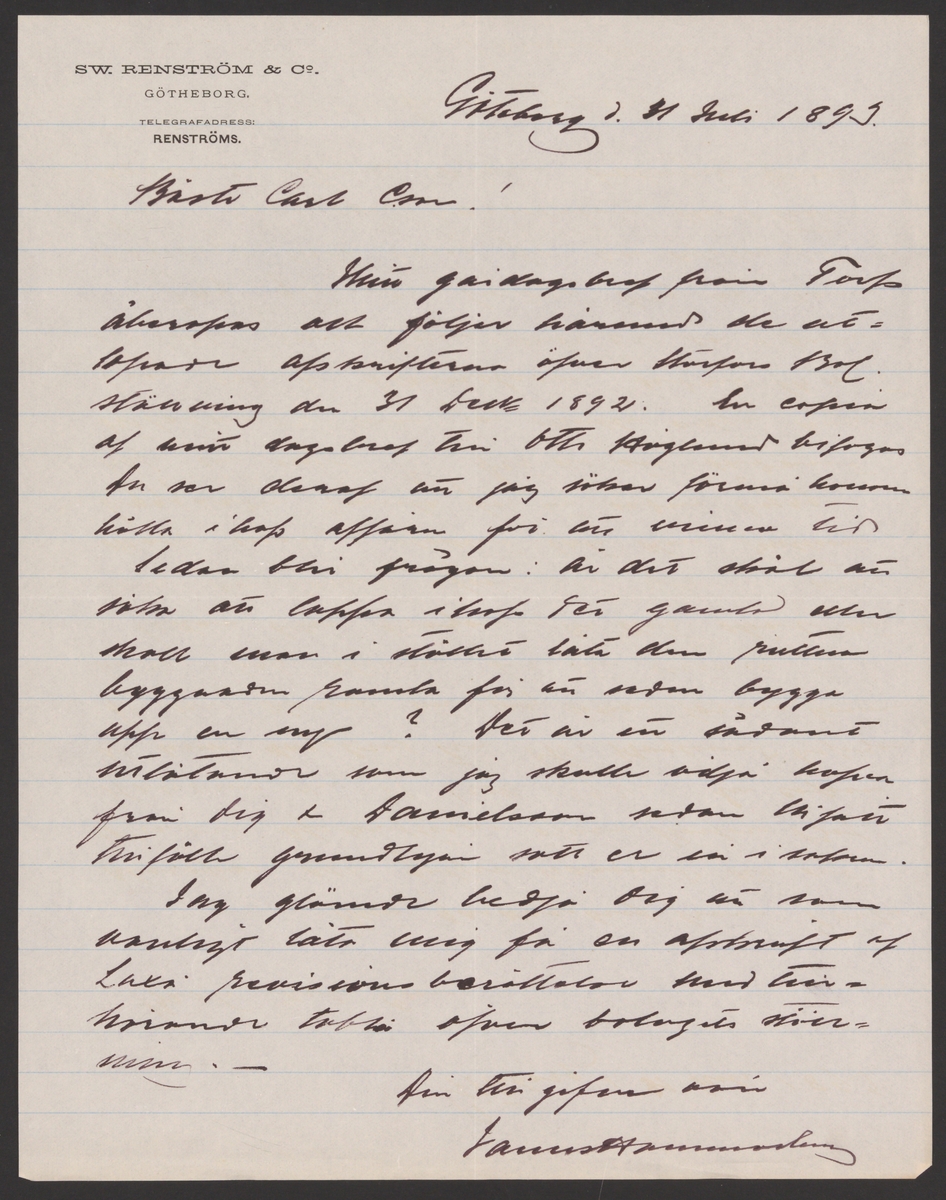 SW. RENSTRÖM & Co.
GÖTHEBORG.
TELEGRAFADRESS:
RENSTRÖMS.
Göteborg d. 31 Juli 1893.
Bäste Carl Cson!
Mitt gårdagsbref från Torp
åberopas och följer härmed de ut=
lofvade afskrifterna öfver Storfors Bol.
ställning den 31 Dec 1892. En copia
af mitt dagsbref till Otto Höglund bifogas
Du ser deraf att jag söker förmå honom
hålla ihop affären för att vinna tid
Sedan blir frågan: är det skäl att
söka att lappa ihop det gamla eller
skall man i stället låta den ruttna
byggnaden ramla för att sedan bygga
upp en ny? Det är ett sådant
utlåtande som jag skulle vilja hafva
från Dig & Danielsson sedan Ni fått
tillfälle grundligen sätt er in i saken.
Jag glömde bedja Dig att som
vanligt låta mig få en afskrift af
Laxå revisionsberättelse med till=
hörande tablå öfver bolagets ställ=
ning. —
Din tillgifne vän
James Hammarberg